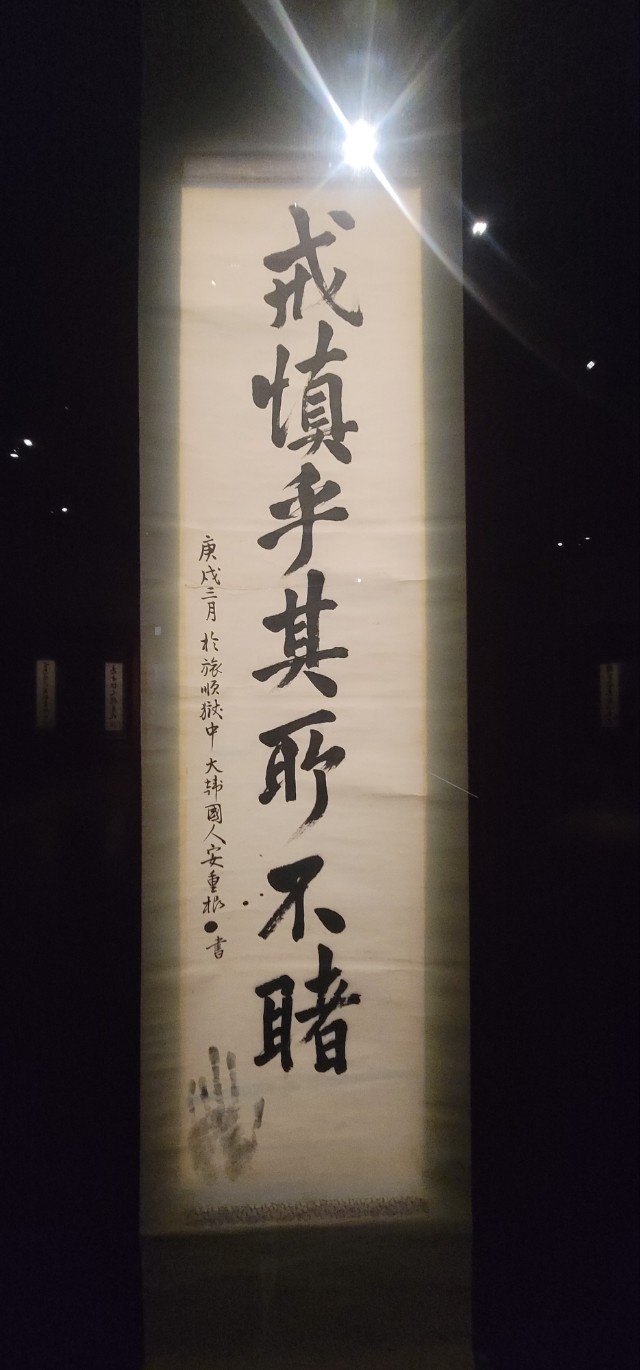 戒慎乎其所不睹
庚戌三月 於旅順獄中 大韓國人 安重根 書